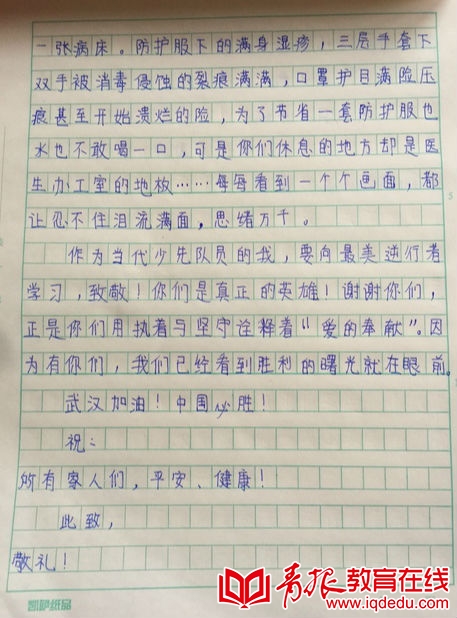 一张病床。防护服下的满身湿疹，三层手套下
双手被消毒侵蚀的裂痕满满，口罩护目满脸压
痕甚至开始溃烂的脸，为了节省一套防护服也
水也不敢喝一口，可是你们休息的地方却是医
生办工室的地板……每每看到一个个画面，都
让忍不住泪流满面，思绪万千。
作为当代少先队员的我，要向最美逆行者
学习，致敬！你们是真正的英雄！谢谢你们，
正是你们用执着与坚守诠释着“爱的奉献”。因
为有你们，我们已经看到胜利的曙光就在眼前。
武汉加油！中国必胜！
祝：
所有家人们，平安、健康！
此致，
敬礼！
凯萨纸品
青报教育在线
www.iqdedu.com